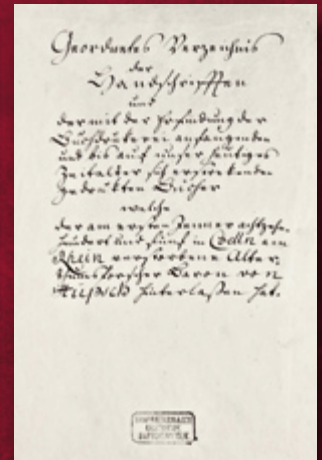 Geordnetes Verzeichnis
der
Handschrifften
und
der mit der Erfindung der
Buchdrukerei anfangenden
und bis auf unser heutiges
Zeitalter sich erstrekenden
gedrukten Bücher
welche
der am ersten Jenner achtzehn
hundert und fünf in Coelln am
Rhein verstorbene Alter-
thumsforscher Baron von
Hüpsch hinterlaßen hat.